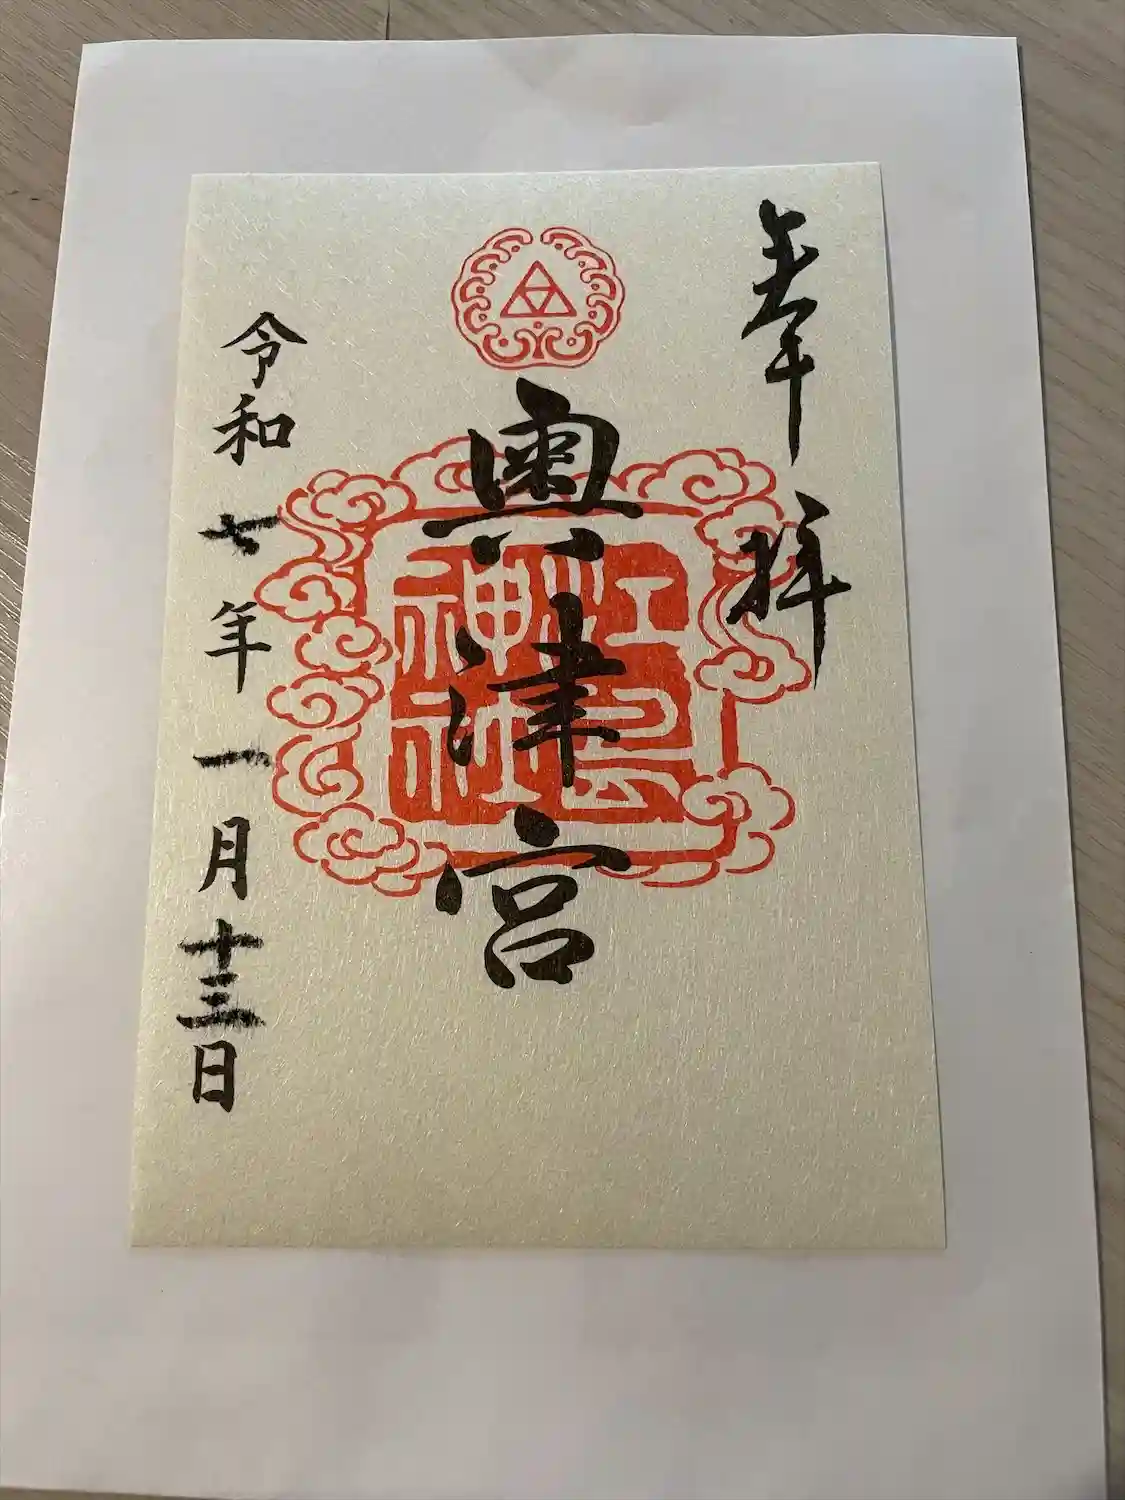 奉拝
奥津宮
江島神社
令和七年一月十三日